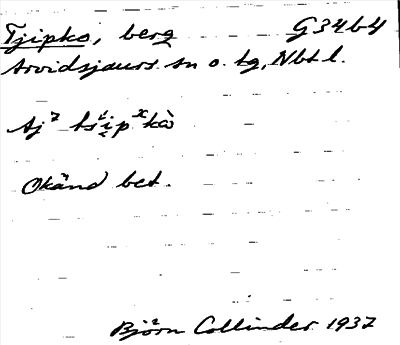 Tjipko, berg G34b4
Arvidsjaurs sn o. tg, Nbt l.
Okänd bet.
Björn Collinder 1937